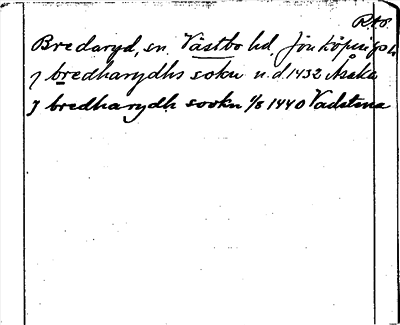 RAÖ.
Bredaryd, sn. Västbo hd, Jönköpings l.
J bredharydhs sokn u.d. 1432 Åseka
J bredharydh sookn 1/8 1440 Vadstena